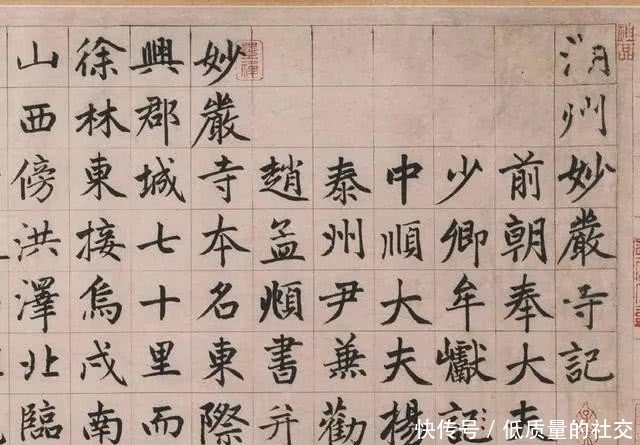 湖州妙嚴寺記
前朝奉大
少卿牟巘記
中順大夫楊
泰州尹兼勸
趙孟頫書并
妙嚴寺本名東際
興郡城七十里而
徐林東接烏戍南
山西傍洪澤北臨
快传号 / 低质量的社交